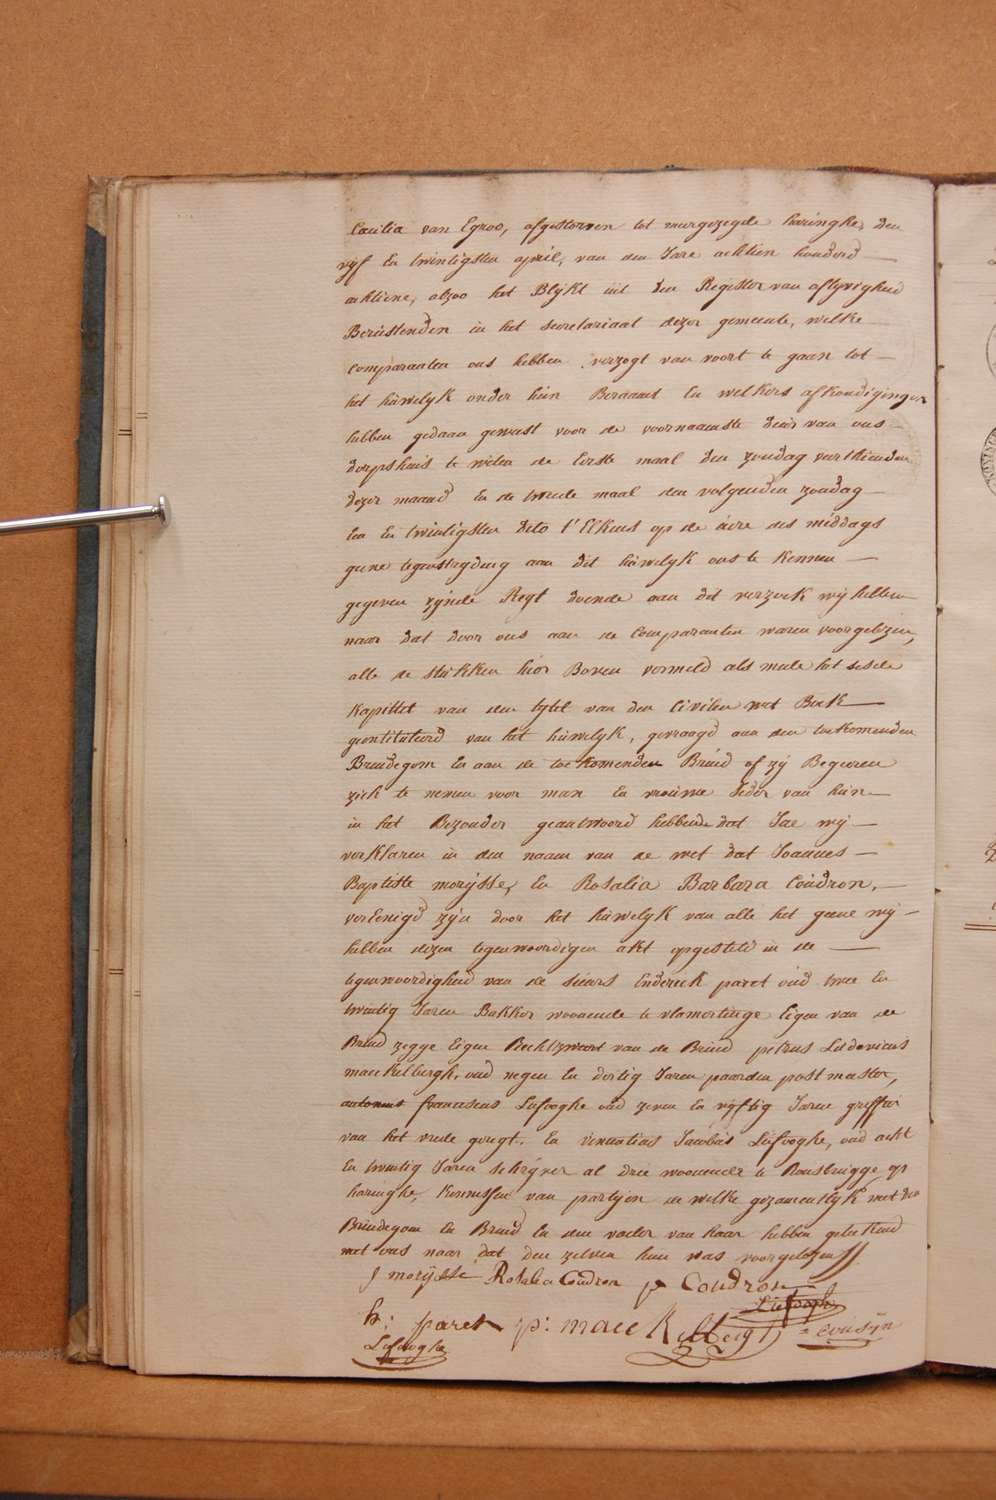 Cacilia van Egroo, afgestorven tot meergezegde haringhe, den
vyf En twintigsten april, van den Jare achtien honderd
achtiene, alzoo het Blykt uit den Register van aflyvigheid
Berustenden in het secretariaat dezer gemeente, welke
comparanten ons hebben verzogt van voort te gaan tot
het huwelyk onder hun Beraamt En welkers afkondigingen
hebben gedaan geweest voor de voornaamste deur van ons
dorpshuis te weten de Eerste maal den zondag veerthienden
dezer maand En de tweede maal den volgenden zondag
Een En twintigsten dito t'Elkens op de uere des middags
geene tegenstryding aan dit huwelyk ons te kennen
gegeven zynde Regt doende aan dit verzoek wy hebben
naar dat door ons aan de Comparanten waren voorgelezen,
alle de stukken hier Boven vermeld als mede het sesde
Kapittel van den tytel van den Civilen wet Boek
geintituleerd van het huwelyk, gevraagd aan den toekomenden
Bruidegom En aan de toekomenden Bruid of zy Begeeren
zich te nemen voor man En vrouwe Ieder van hun
in het Bezonder geantwoord hebbende dat Jae wy
verklaren in den naam van de wet dat Joannes
Baptiste morysse, En Rosalia Barbara Coudron,
verEenigd zyn door het huwelyk van alle het geene wy
hebben dezen tegenwoordigen akt opgesteld in de
tegenwoordigheid van de sieurs Enderick paret oud twee En
twintig Jaren Bakker woonende te vlamertinge Eigen van de
Bruid zegge Eigen Rechtzweert van de Bruid petrus Ludovicus
maeckelbergh, oud negen En dertig Jaren paarden postmeester,
franciscus Lefooghe oud zeven En vyftig Jaren griffier
van het vrede geregt. En Jacobus Lefooghe, oud acht
En twintig Jaren schryver al drie woonende te Rousbrugge op
haringhe, Kennissen van partyen de welke gezamentlyk met den
Bruidegom En Bruid En den vader van haar hebben geteekend
met ons naar dat den zelven hun was voorgelezen
J morysse Rosalia Coudron p Coudron
Lefooghe
h: paret p: maeckelbergh Cousyn
Lefooghe